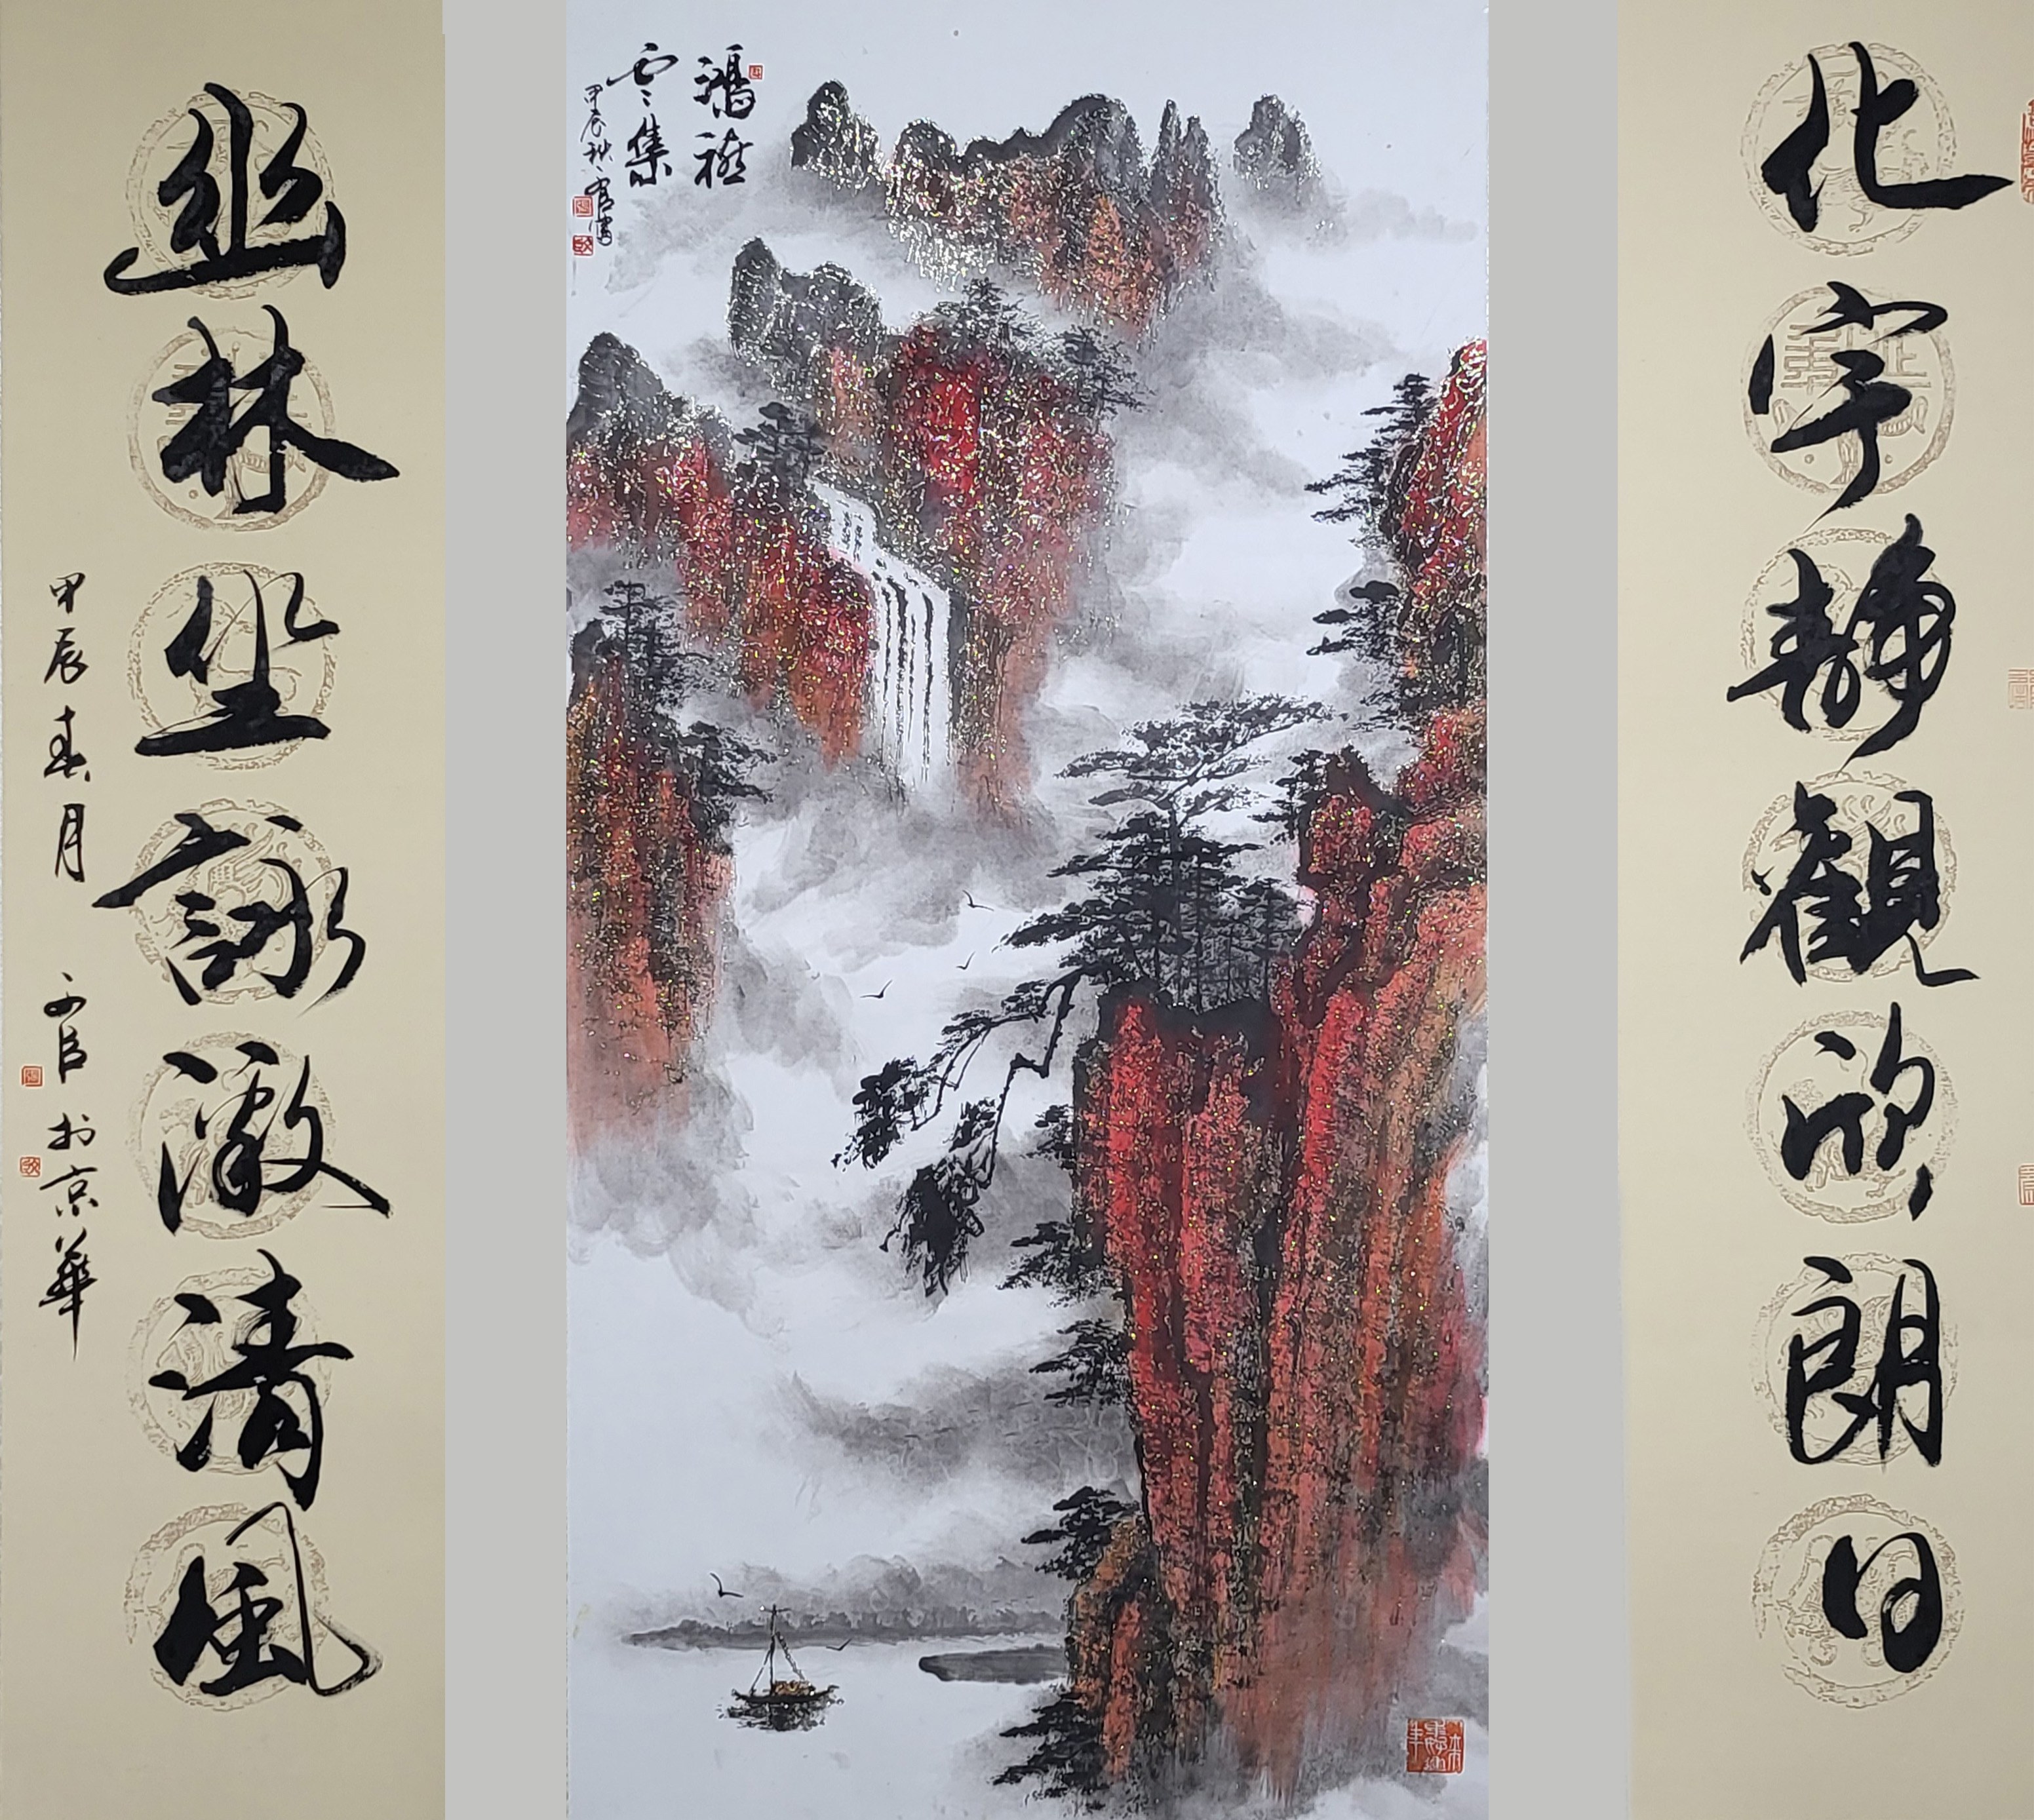 化宇靜觀欣朗日
鴻禧
雲集
甲辰秋
幽林坐詠激清風
甲辰春月 官 於京華